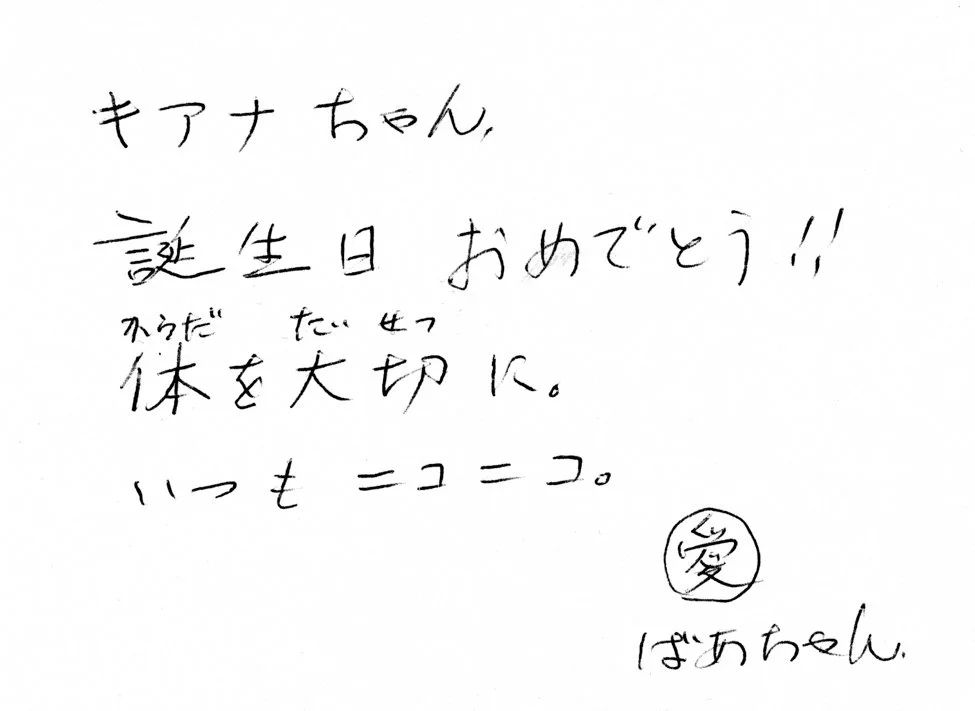 キアナちゃん,
誕生日おめでとう!!
からだ たいせつ
体を大切に。
いつもニコニコ。
愛
ばあちゃん.